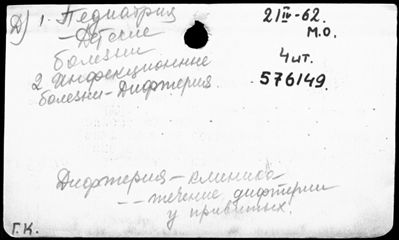 Д) 1. Педиатрия
- Детские
болезни
2. Инфекционные
болезни - Дифтерия.
21 IV - 62.
М.О.
4 шт.
576149.
Дифтерия - клиника
- - течение дифтерии
у привитых.
Г.К.